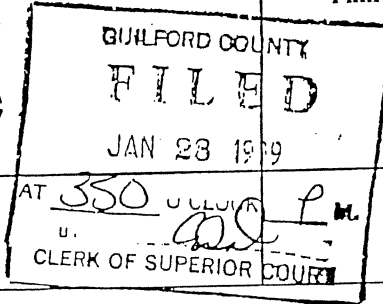 GUILFORD COUNTY
FILED
JAN 28 19 9
AT 350 O'CLOCK P M.
CLERK OF SUPERIOR COURT